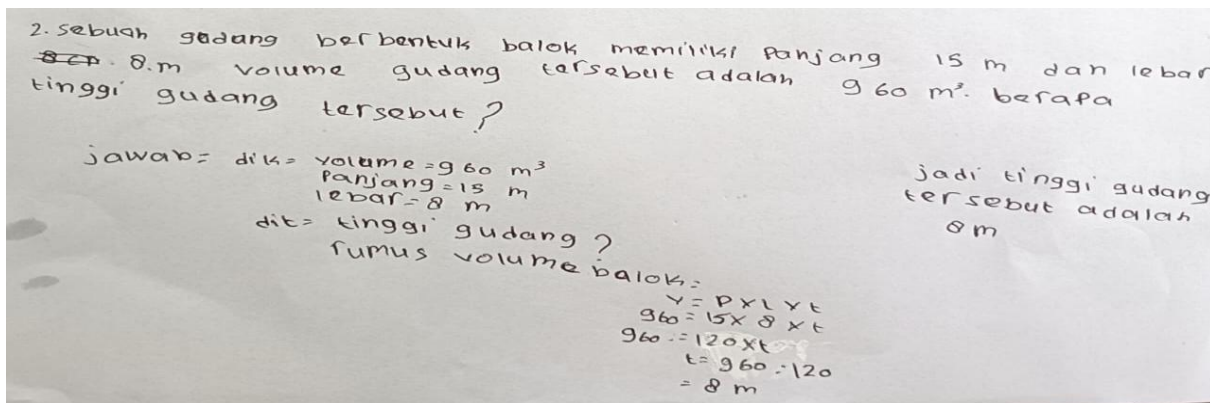 2. sebuah gudang berbentuk balok memiliki Panjang 15 m dan lebar
8.m volume gudang tersebut adalah 960 m³. berapa
tinggi gudang tersebut?
jawab= dik= volume=960 m³
Panjang=15 m
lebar=8 m
dit= tinggi gudang?
rumus volume balok:
V=PXLXt
960=15x8xt
960:=120xt
t=960:120
=8 m
jadi tinggi gudang
tersebut adalah
8m